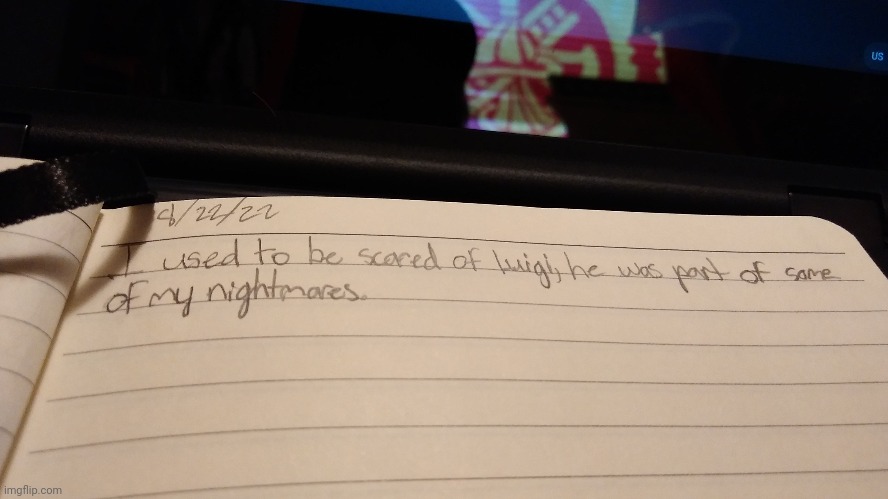 US
8/22/22
I used to be scared of luigi, he was part of some
of my nightmares.
imgflip.com